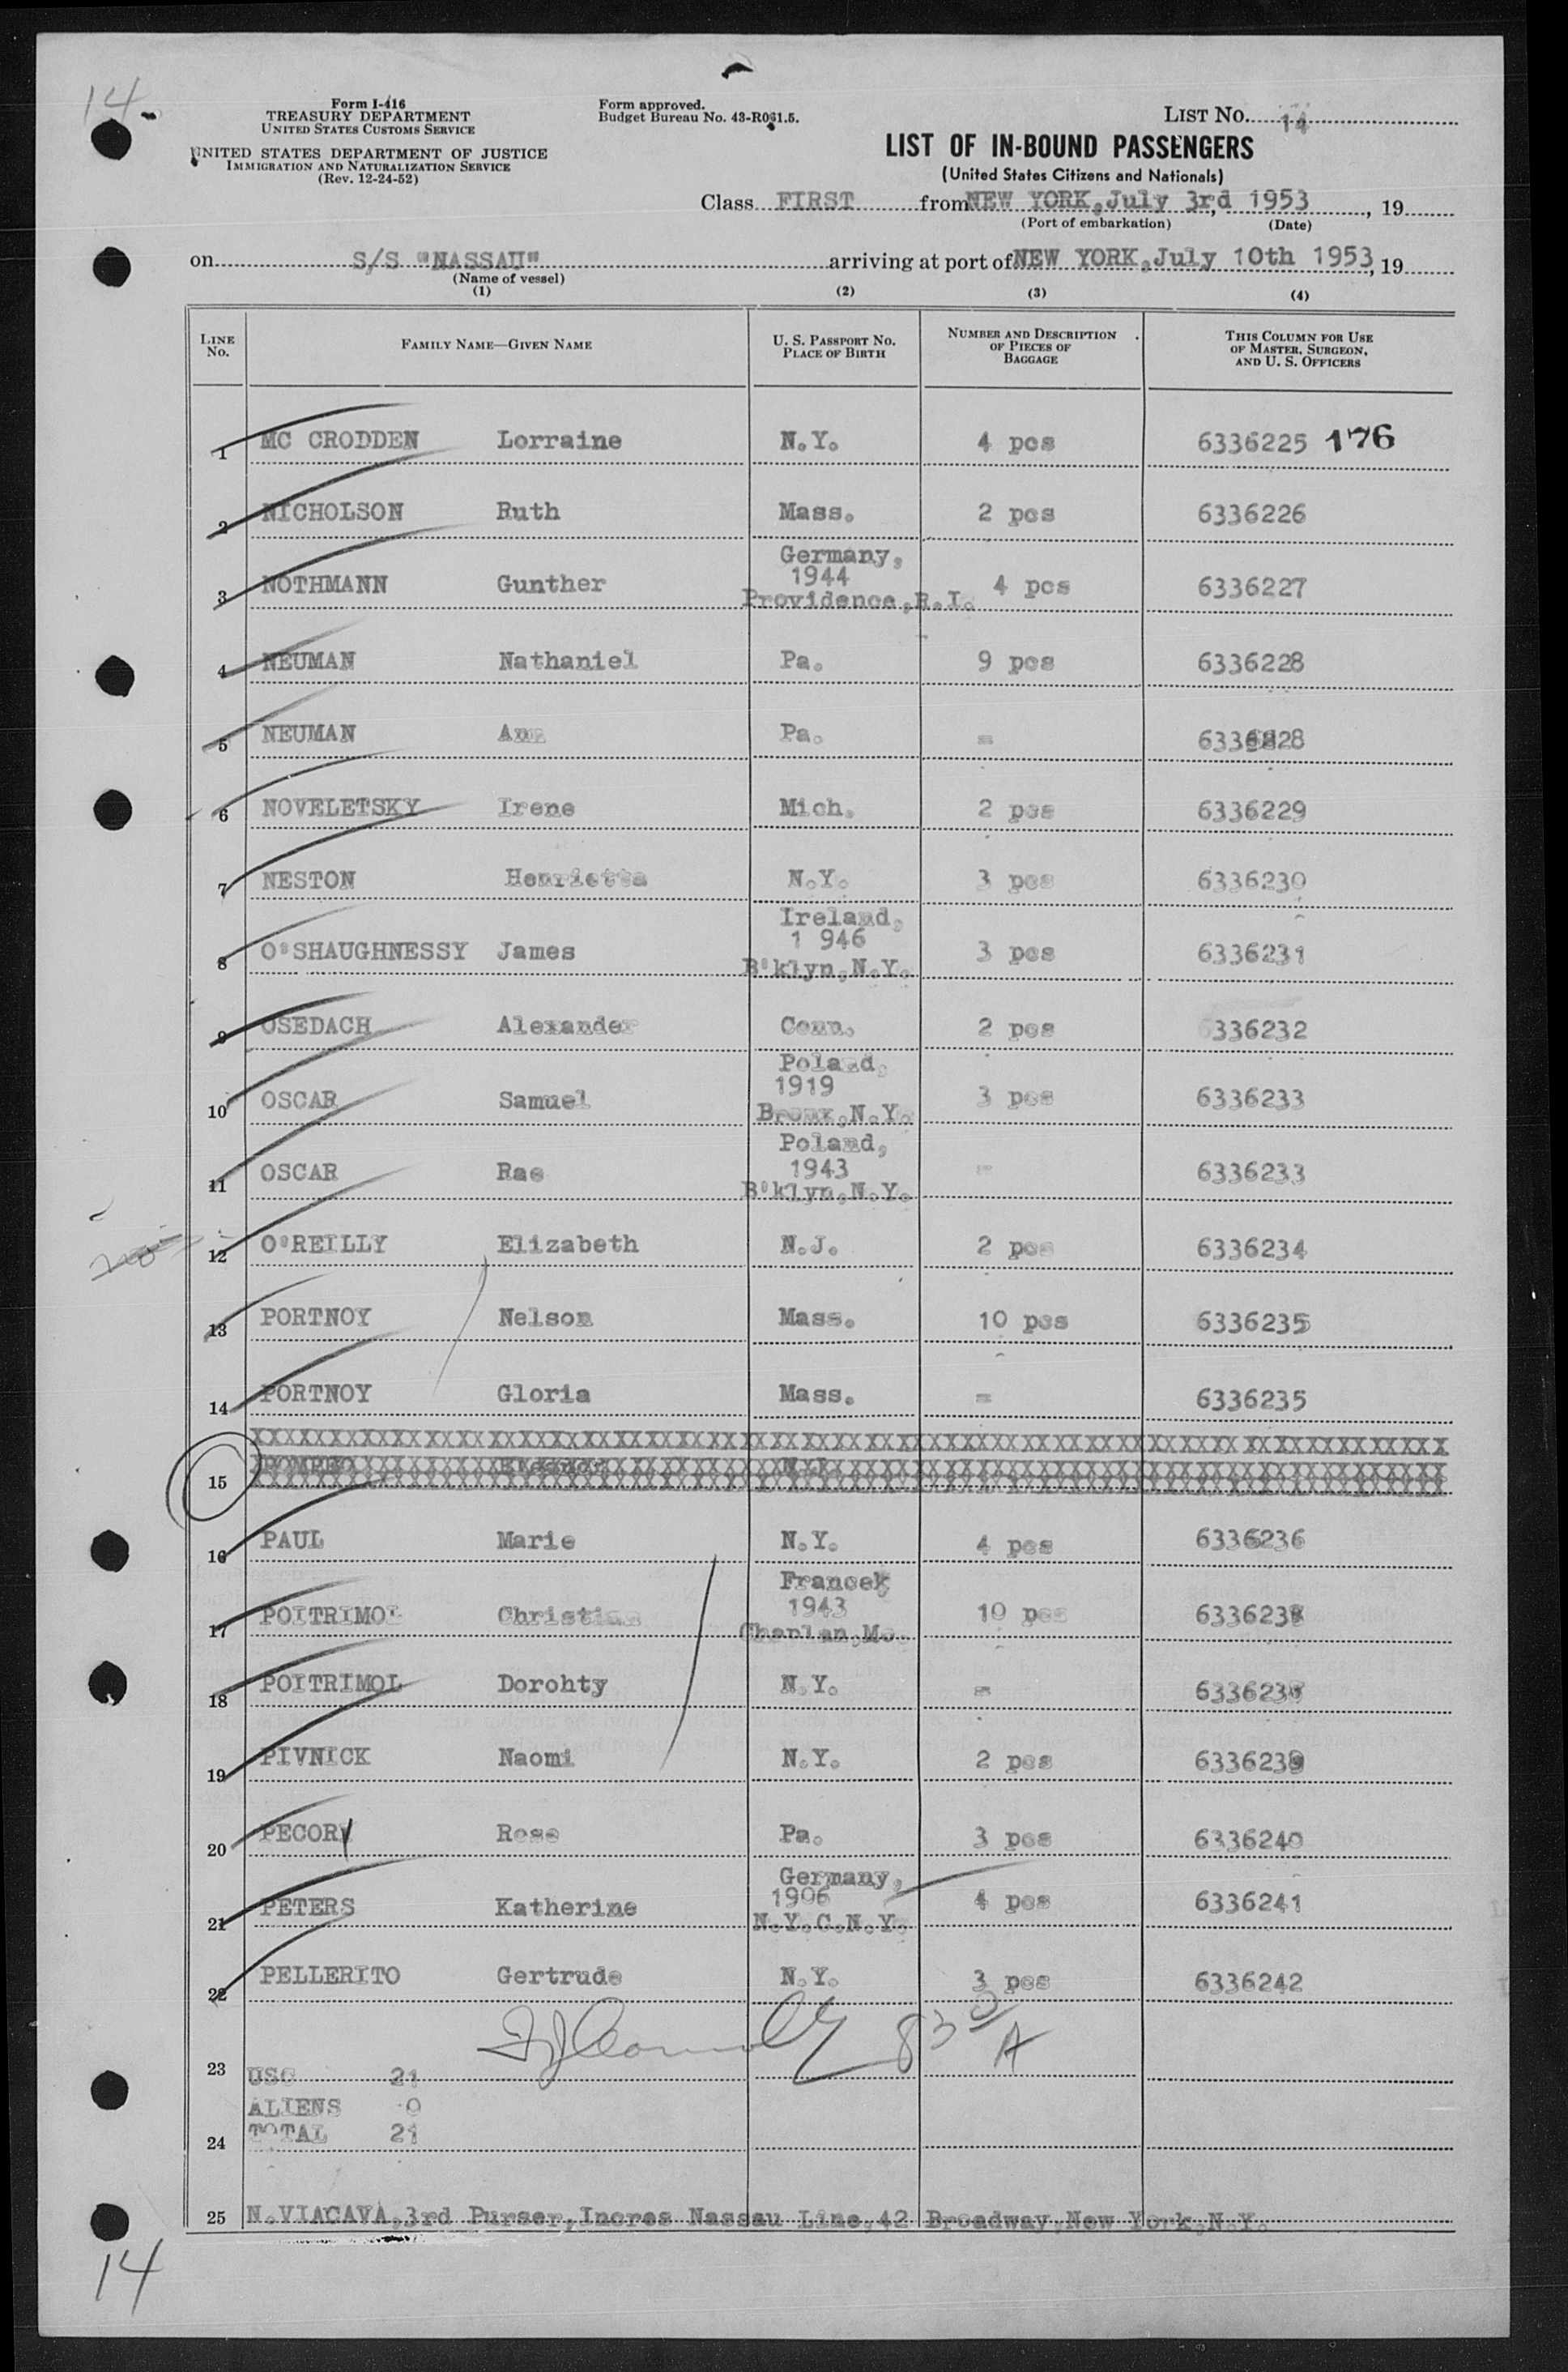 14
Form I-416
TREASURY DEPARTMENT
UNITED STATES CUSTOMS SERVICE
UNITED STATES DEPARTMENT OF JUSTICE
IMMIGRATION AND NATURALIZATION SERVICE
(Rev. 12-24-52)
Form approved.
Budget Bureau No. 43-R061.5.
LIST No. 14
LIST OF IN-BOUND PASSENGERS
(United States Citizens and Nationals)
Class FIRST from NEW YORK, July 3rd, 1953, 19
(Port of embarkation) (Date)
on S/S "NASSAU" arriving at port of NEW YORK, July 10th 1953, 19
(Name of vessel)
(1) (2) (3) (4)
LINE No. FAMILY NAME—GIVEN NAME U. S. PASSPORT NO. PLACE OF BIRTH NUMBER AND DESCRIPTION OF PIECES OF BAGGAGE THIS COLUMN FOR USE OF MASTER, SURGEON, AND U. S. OFFICERS
1 MC CRODDEN Lorraine N.Y. 4 pcs 6336225 176
2 NICHOLSON Ruth Mass. 2 pcs 6336226
3 NOTHMANN Gunther Germany, 1944 Providence,R.I. 4 pcs 6336227
4 NEUMAN Nathaniel Pa. 9 pcs 6336228
5 NEUMAN Ann Pa. -
6 NOVELETSKY Irene Mich. 2 pcs 6336229
7 NESTON Henrietta N.Y. 3 pcs 6336230
8 O'SHAUGHNESSY James Ireland, 1 946 B'klyn,N.Y. 3 pcs 6336231
9 OSEDACH Alexander Conn. 2 pcs 6336232
10 OSCAR Samuel Poland, 1919 Bronx,N.Y. 3 pcs 6336233
11 OSCAR Rae Poland, 1943 B'klyn,N.Y. - 6336233
12 O'REILLY Elizabeth N.J. 2 pcs 6336234
13 PORTNOY Nelson Mass. 10 pcs 6336235
14 PORTNOY Gloria Mass. - 6336235
15
16 PAUL Marie N.Y. 4 pcs 6336236
17 POITRIMOL 1943 10 pcs
18 POITRIMOL Dorohty N.Y. -
19 PIVNICK Naomi N.Y. 2 pcs 6336239
20 PECORY Rose Pa. 3 pcs 6336240
21 PETERS Katherine Germany, 1906 N.Y.C.N.Y. 4 pcs 6336241
22 PELLERITO Gertrude N.Y. 3 pcs 6336242
23 USC 21
ALIENS 0
24 TOTAL 21
25 N.VIACAVA,3rd Purser,Incres Nassau Line,42 Broadway,New York,N.Y.
14